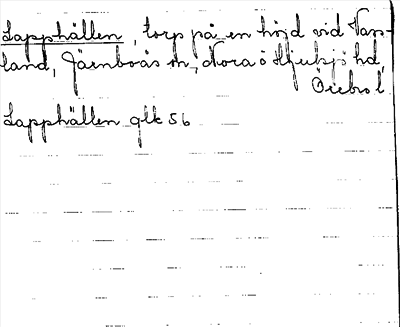 Lapphällen, torp på en höjd vid Vass-
land, Järnboås sn, Nora o Hjulsjö hd,
Örebro l.
Lapphällen glk 56